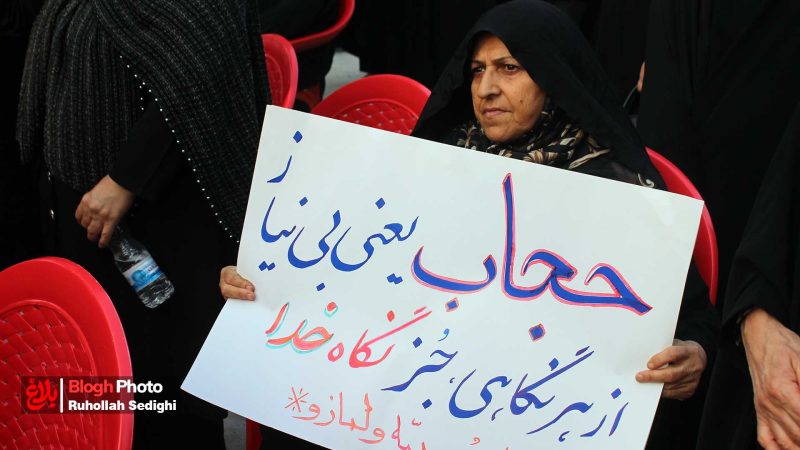 حجاب یعنی بی نیاز
از هر نگاهی، جُز نگاه خدا
بلاغ
Blogh Photo
Ruhollah Sedighi